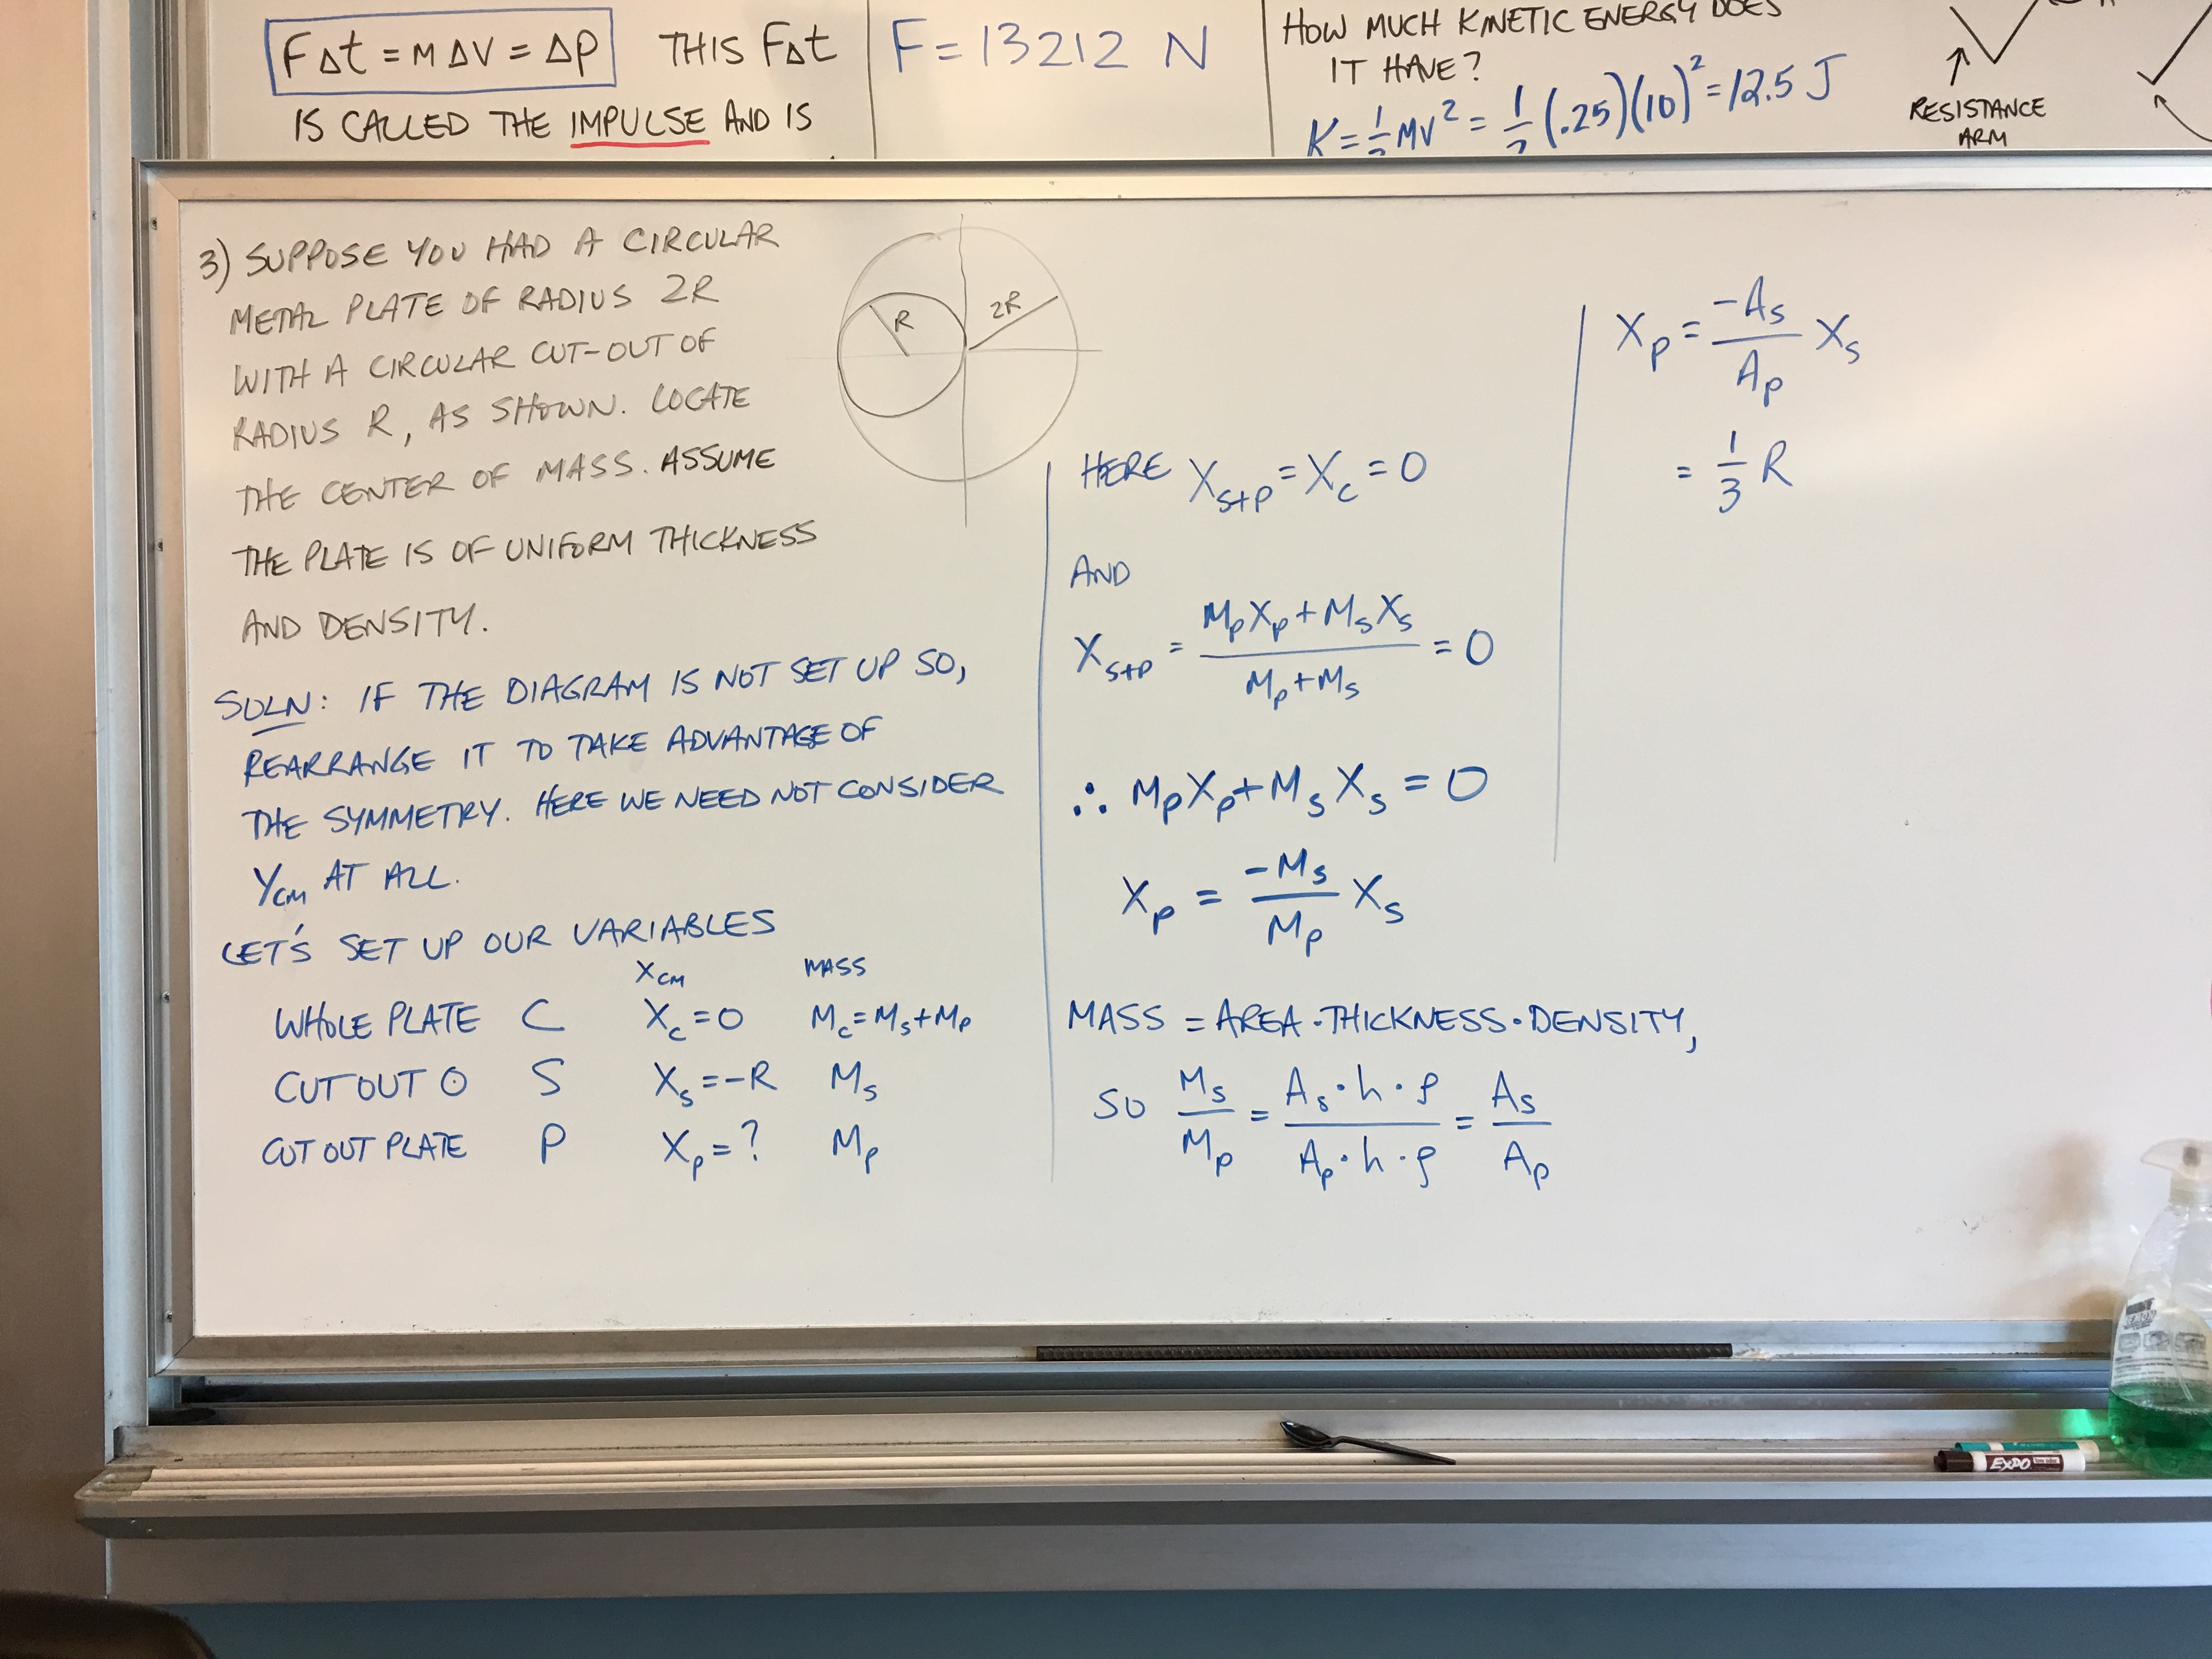 F∆t = m∆v = ∆p THIS F∆t
IS CALLED THE IMPULSE AND IS
F = 13212 N
HOW MUCH KINETIC ENERGY DOES
IT HAVE?
K = 1/2 MV² = 1/2 (.25)(10)² = 12.5 J
RESISTANCE
ARM
3) SUPPOSE YOU HAD A CIRCULAR
METAL PLATE OF RADIUS 2R
WITH A CIRCULAR CUT-OUT OF
RADIUS R, AS SHOWN. LOCATE
THE CENTER OF MASS. ASSUME
THE PLATE IS OF UNIFORM THICKNESS
AND DENSITY.
R
2R
SOLN: IF THE DIAGRAM IS NOT SET UP SO,
REARRANGE IT TO TAKE ADVANTAGE OF
THE SYMMETRY. HERE WE NEED NOT CONSIDER
Y_CM AT ALL.
LET'S SET UP OUR VARIABLES
X_CM MASS
WHOLE PLATE C X_C = 0 M_C = M_S + M_P
CUT OUT ⊙ S X_S = -R M_S
CUT OUT PLATE P X_P = ? M_P
HERE X_S+P = X_C = 0
AND
X_S+P = (M_P X_P + M_S X_S) / (M_P + M_S) = 0
∴ M_P X_P + M_S X_S = 0
X_P = (-M_S / M_P) X_S
MASS = AREA · THICKNESS · DENSITY,
SO M_S / M_P = (A_S · h · ρ) / (A_P · h · ρ) = A_S / A_P
X_P = (-A_S / A_P) X_S
= 1/3 R
EXPO